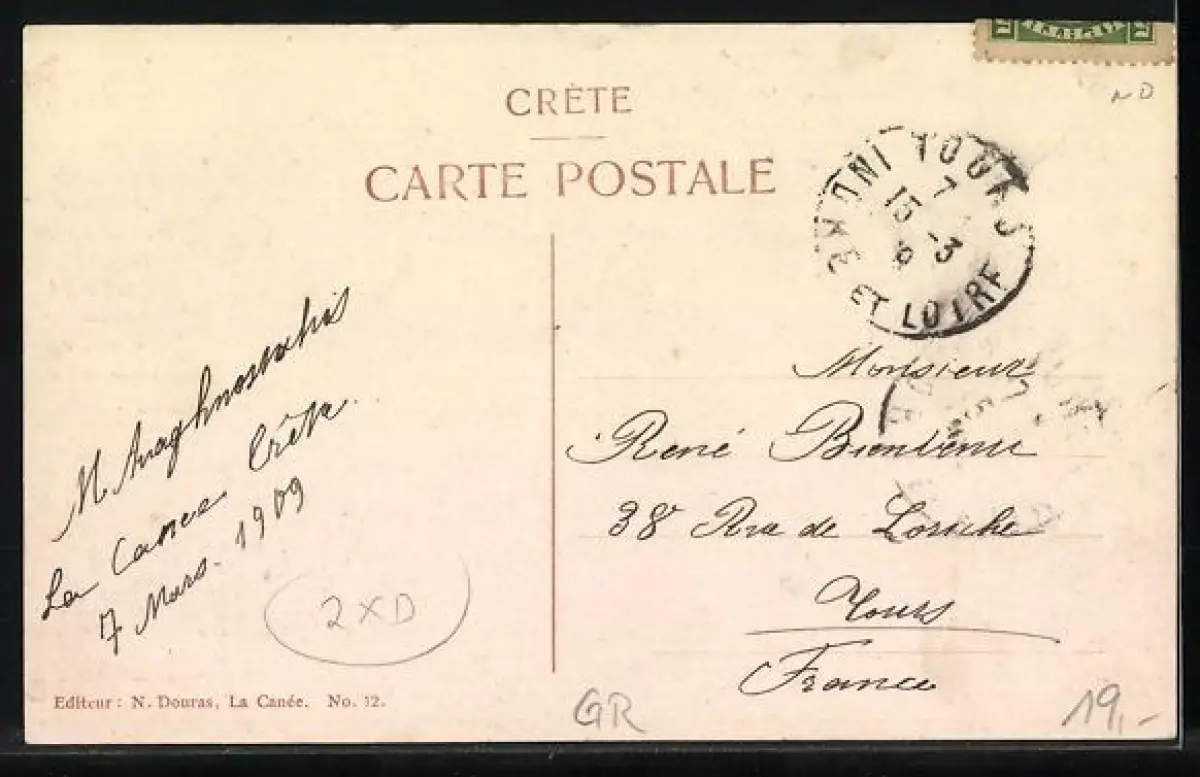 CRÈTE
CARTE POSTALE
TOURS
7
15 - 3
INDRE ET LOIRE
N D
M Anaghnostakis
La Canee Crète
7 Mars. 1909
2XD
Monsieur
René Bienvenu
38 Rue de
Tours
France
Editeur: N. Douras, La Canée. No. 12.
GR
19,-